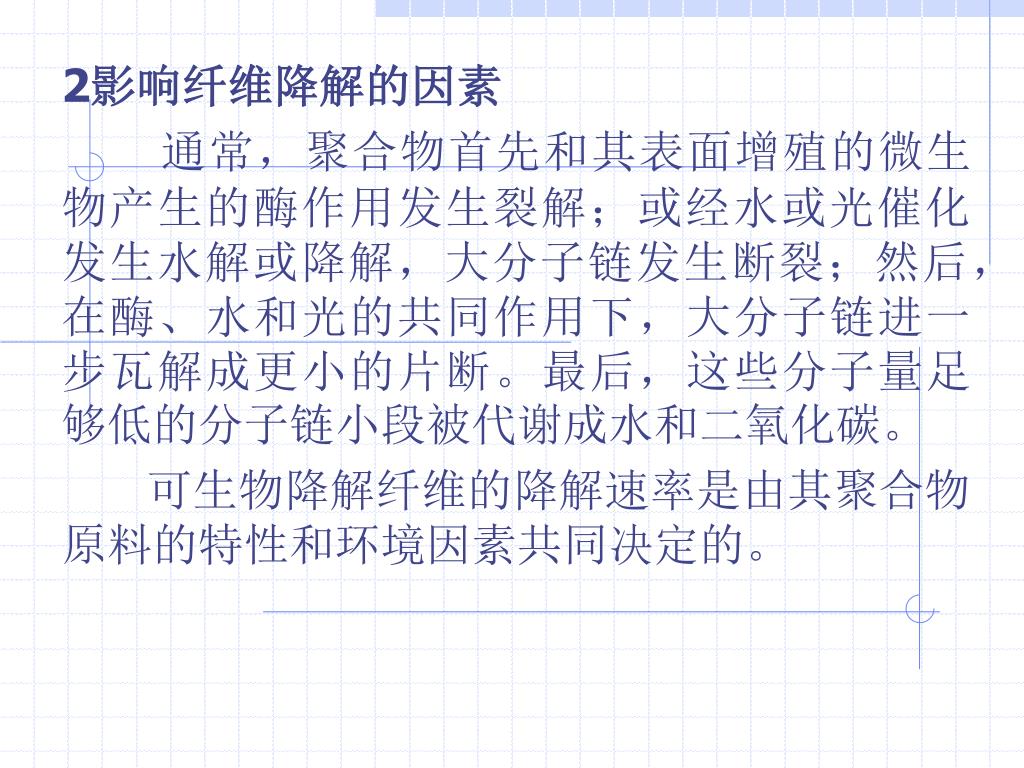 2影响纤维降解的因素
通常，聚合物首先和其表面增殖的微生
物产生的酶作用发生裂解；或经水或光催化
发生水解或降解，大分子链发生断裂；然后，
在酶、水和光的共同作用下，大分子链进一
步瓦解成更小的片断。最后，这些分子量足
够低的分子链小段被代谢成水和二氧化碳。
可生物降解纤维的降解速率是由其聚合物
原料的特性和环境因素共同决定的。